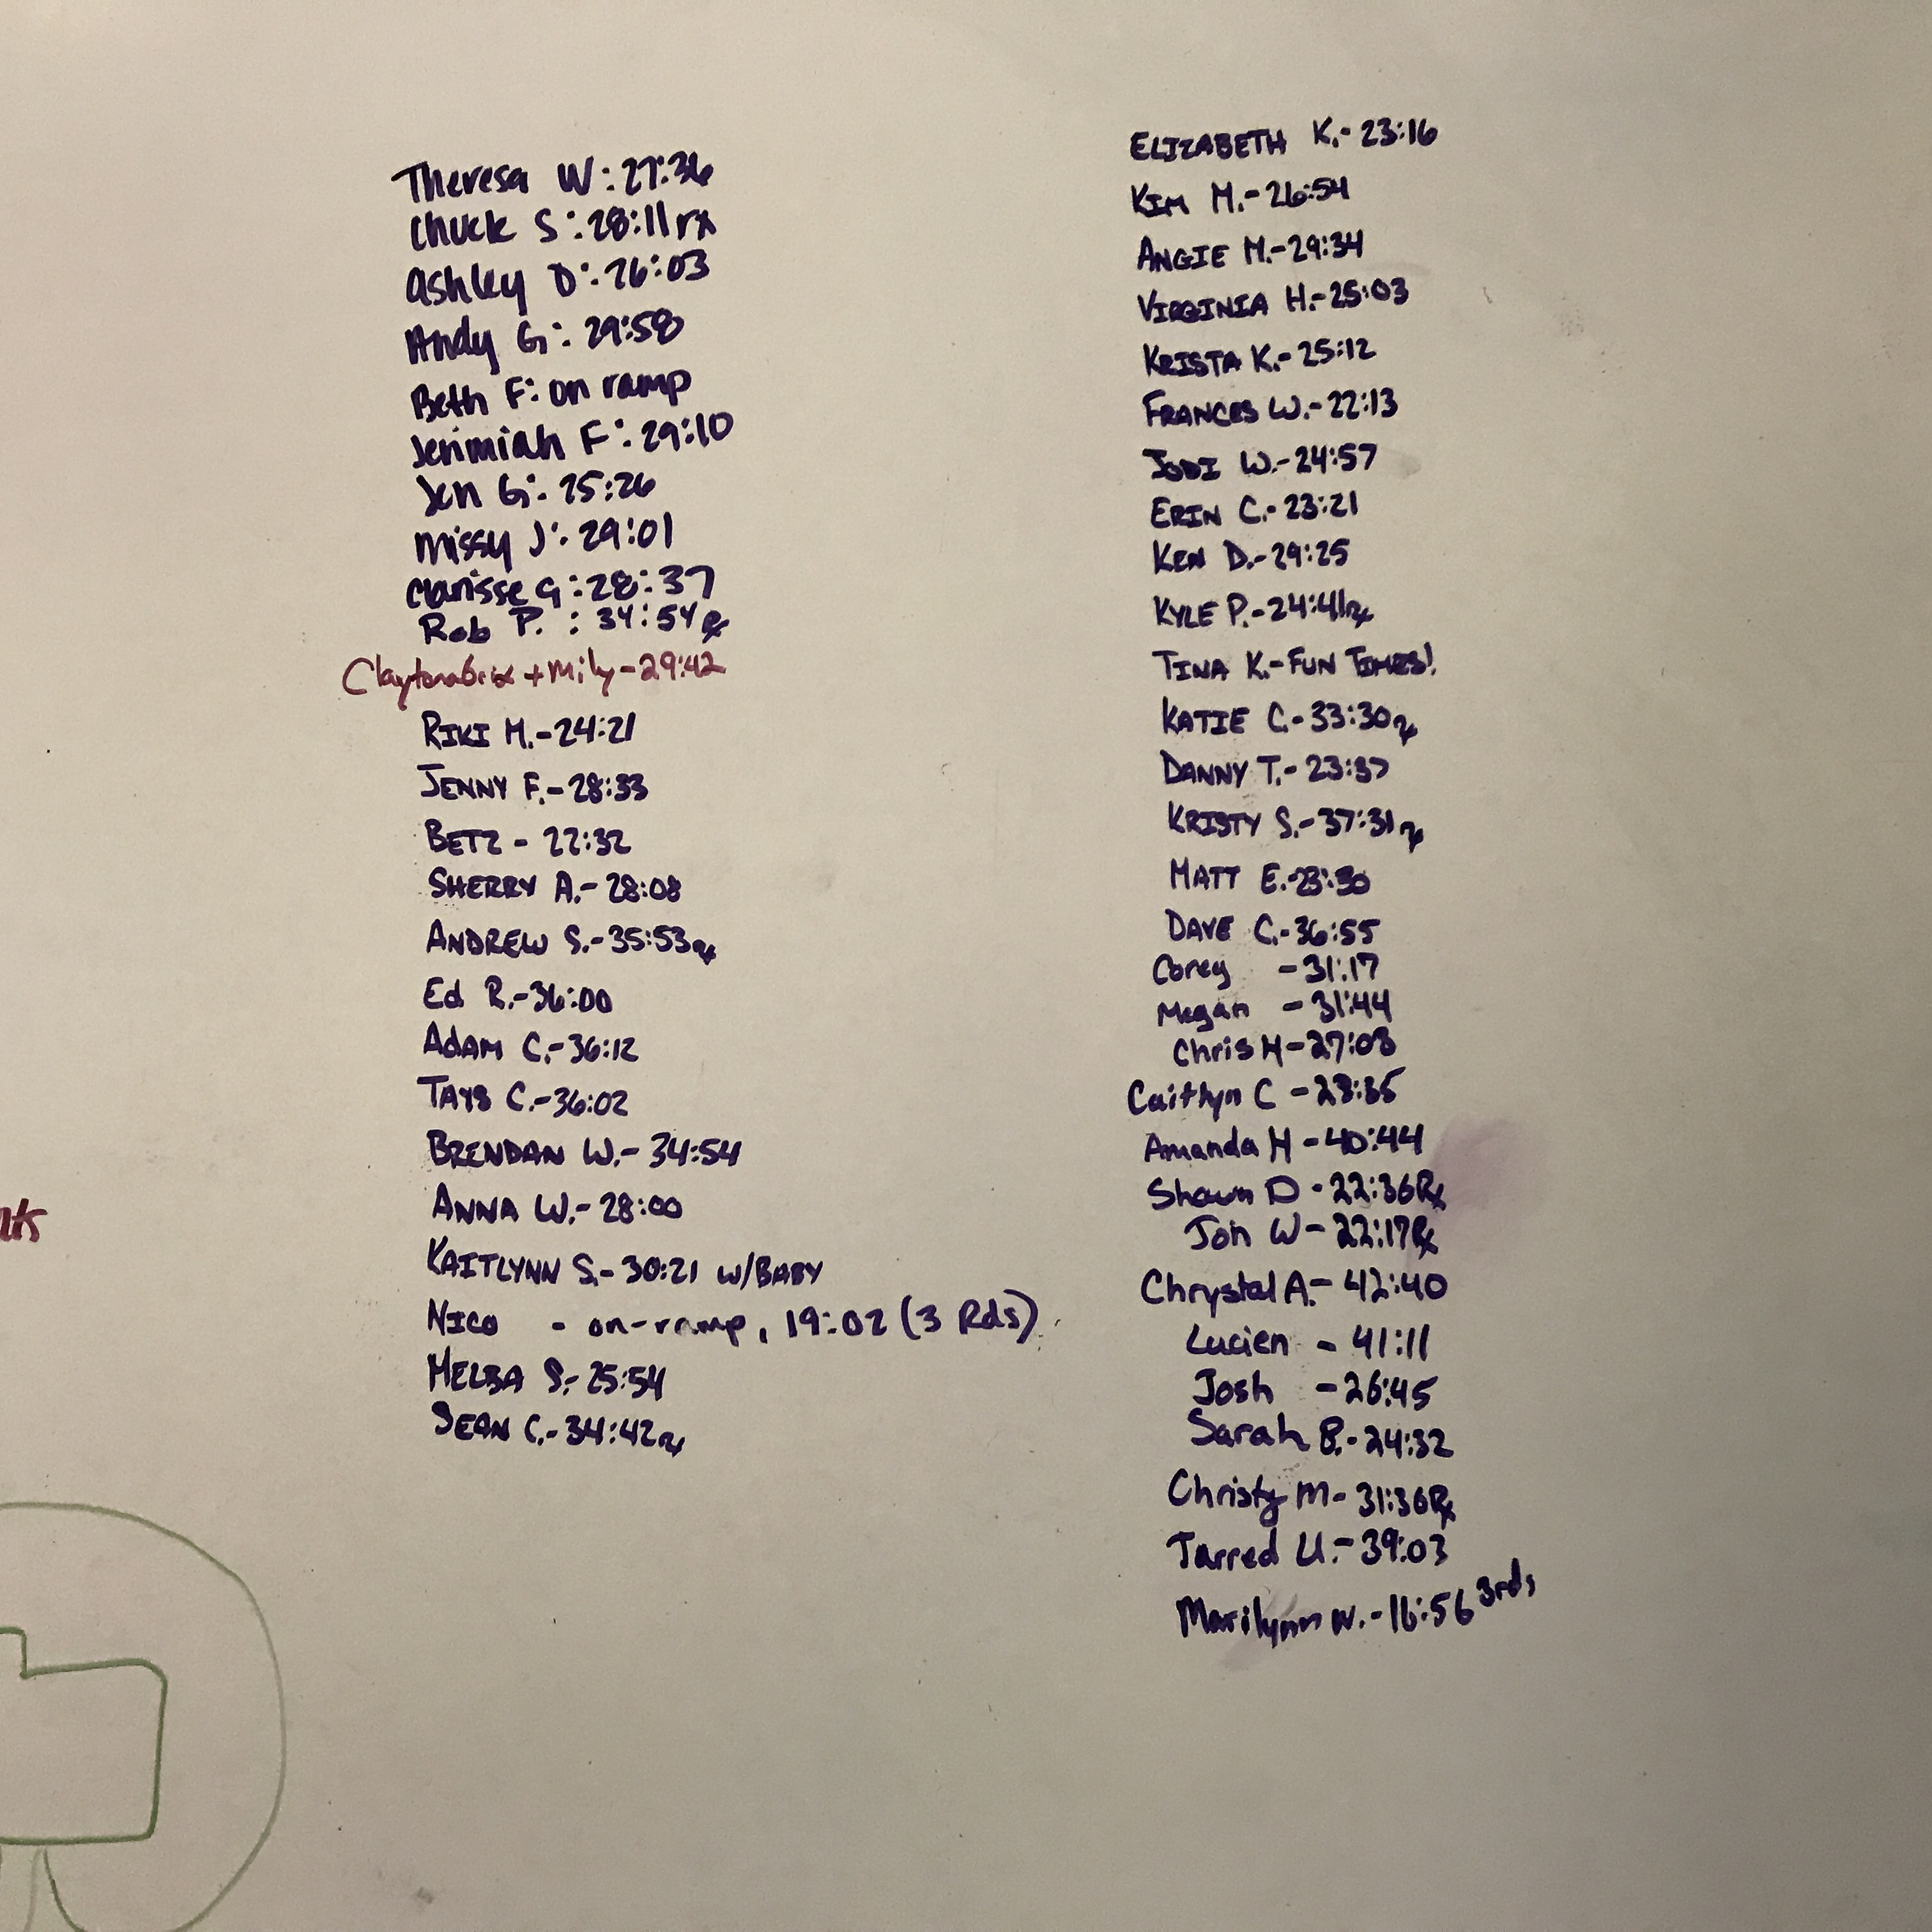 Theresa W: 27:36
Chuck S: 28:11 rx
Ashley D: 26:03
Andy G: 29:58
Beth F: on ramp
Jerimiah F: 29:10
Jen G: 25:26
Missy J: 29:01
Clarisse G: 28:37
Rob P. : 34:54 Rx
+ Mily - 29:42
RIKI M. - 24:21
JENNY F. - 28:33
BETZ - 22:32
SHERRY A. - 28:08
ANDREW S. - 35:53 rx
Ed R. - 36:00
ADAM C. - 36:12
TAYS C. - 36:02
BRENDAN W. - 34:54
ANNA W. - 28:00
KAITLYNN S. - 30:21 W/BABY
NICO - on-ramp, 19:02 (3 Rds)
MELBA S. - 25:54
SEAN C. - 34:42 rx
ELIZABETH K. - 23:16
KIM M. - 26:54
ANGIE M. - 29:34
VIRGINIA H. - 25:03
KRISTA K. - 25:12
FRANCES W. - 22:13
JODI W. - 24:57
ERIN C. - 23:21
KEN D. - 29:25
KYLE P. - 24:41 rx
TINA K. - FUN TIMES!
KATIE C. - 33:30 rx
DANNY T. - 23:37
KRISTY S. - 37:31 rx
MATT E. - 23:30
DAVE C. - 36:55
Corey - 31:17
Megan - 31:44
Chris H - 27:03
Caitlyn C - 28:35
Amanda H - 40:44
Shawn D - 22:36 Rx
Jon W - 22:17 Rx
Chrystal A. - 42:40
Lucien - 41:11
Josh - 26:45
Sarah B. - 24:32
Christy M - 31:36 Rx
Jarred U. - 39:03
Marilynn W. - 16:56 3rds